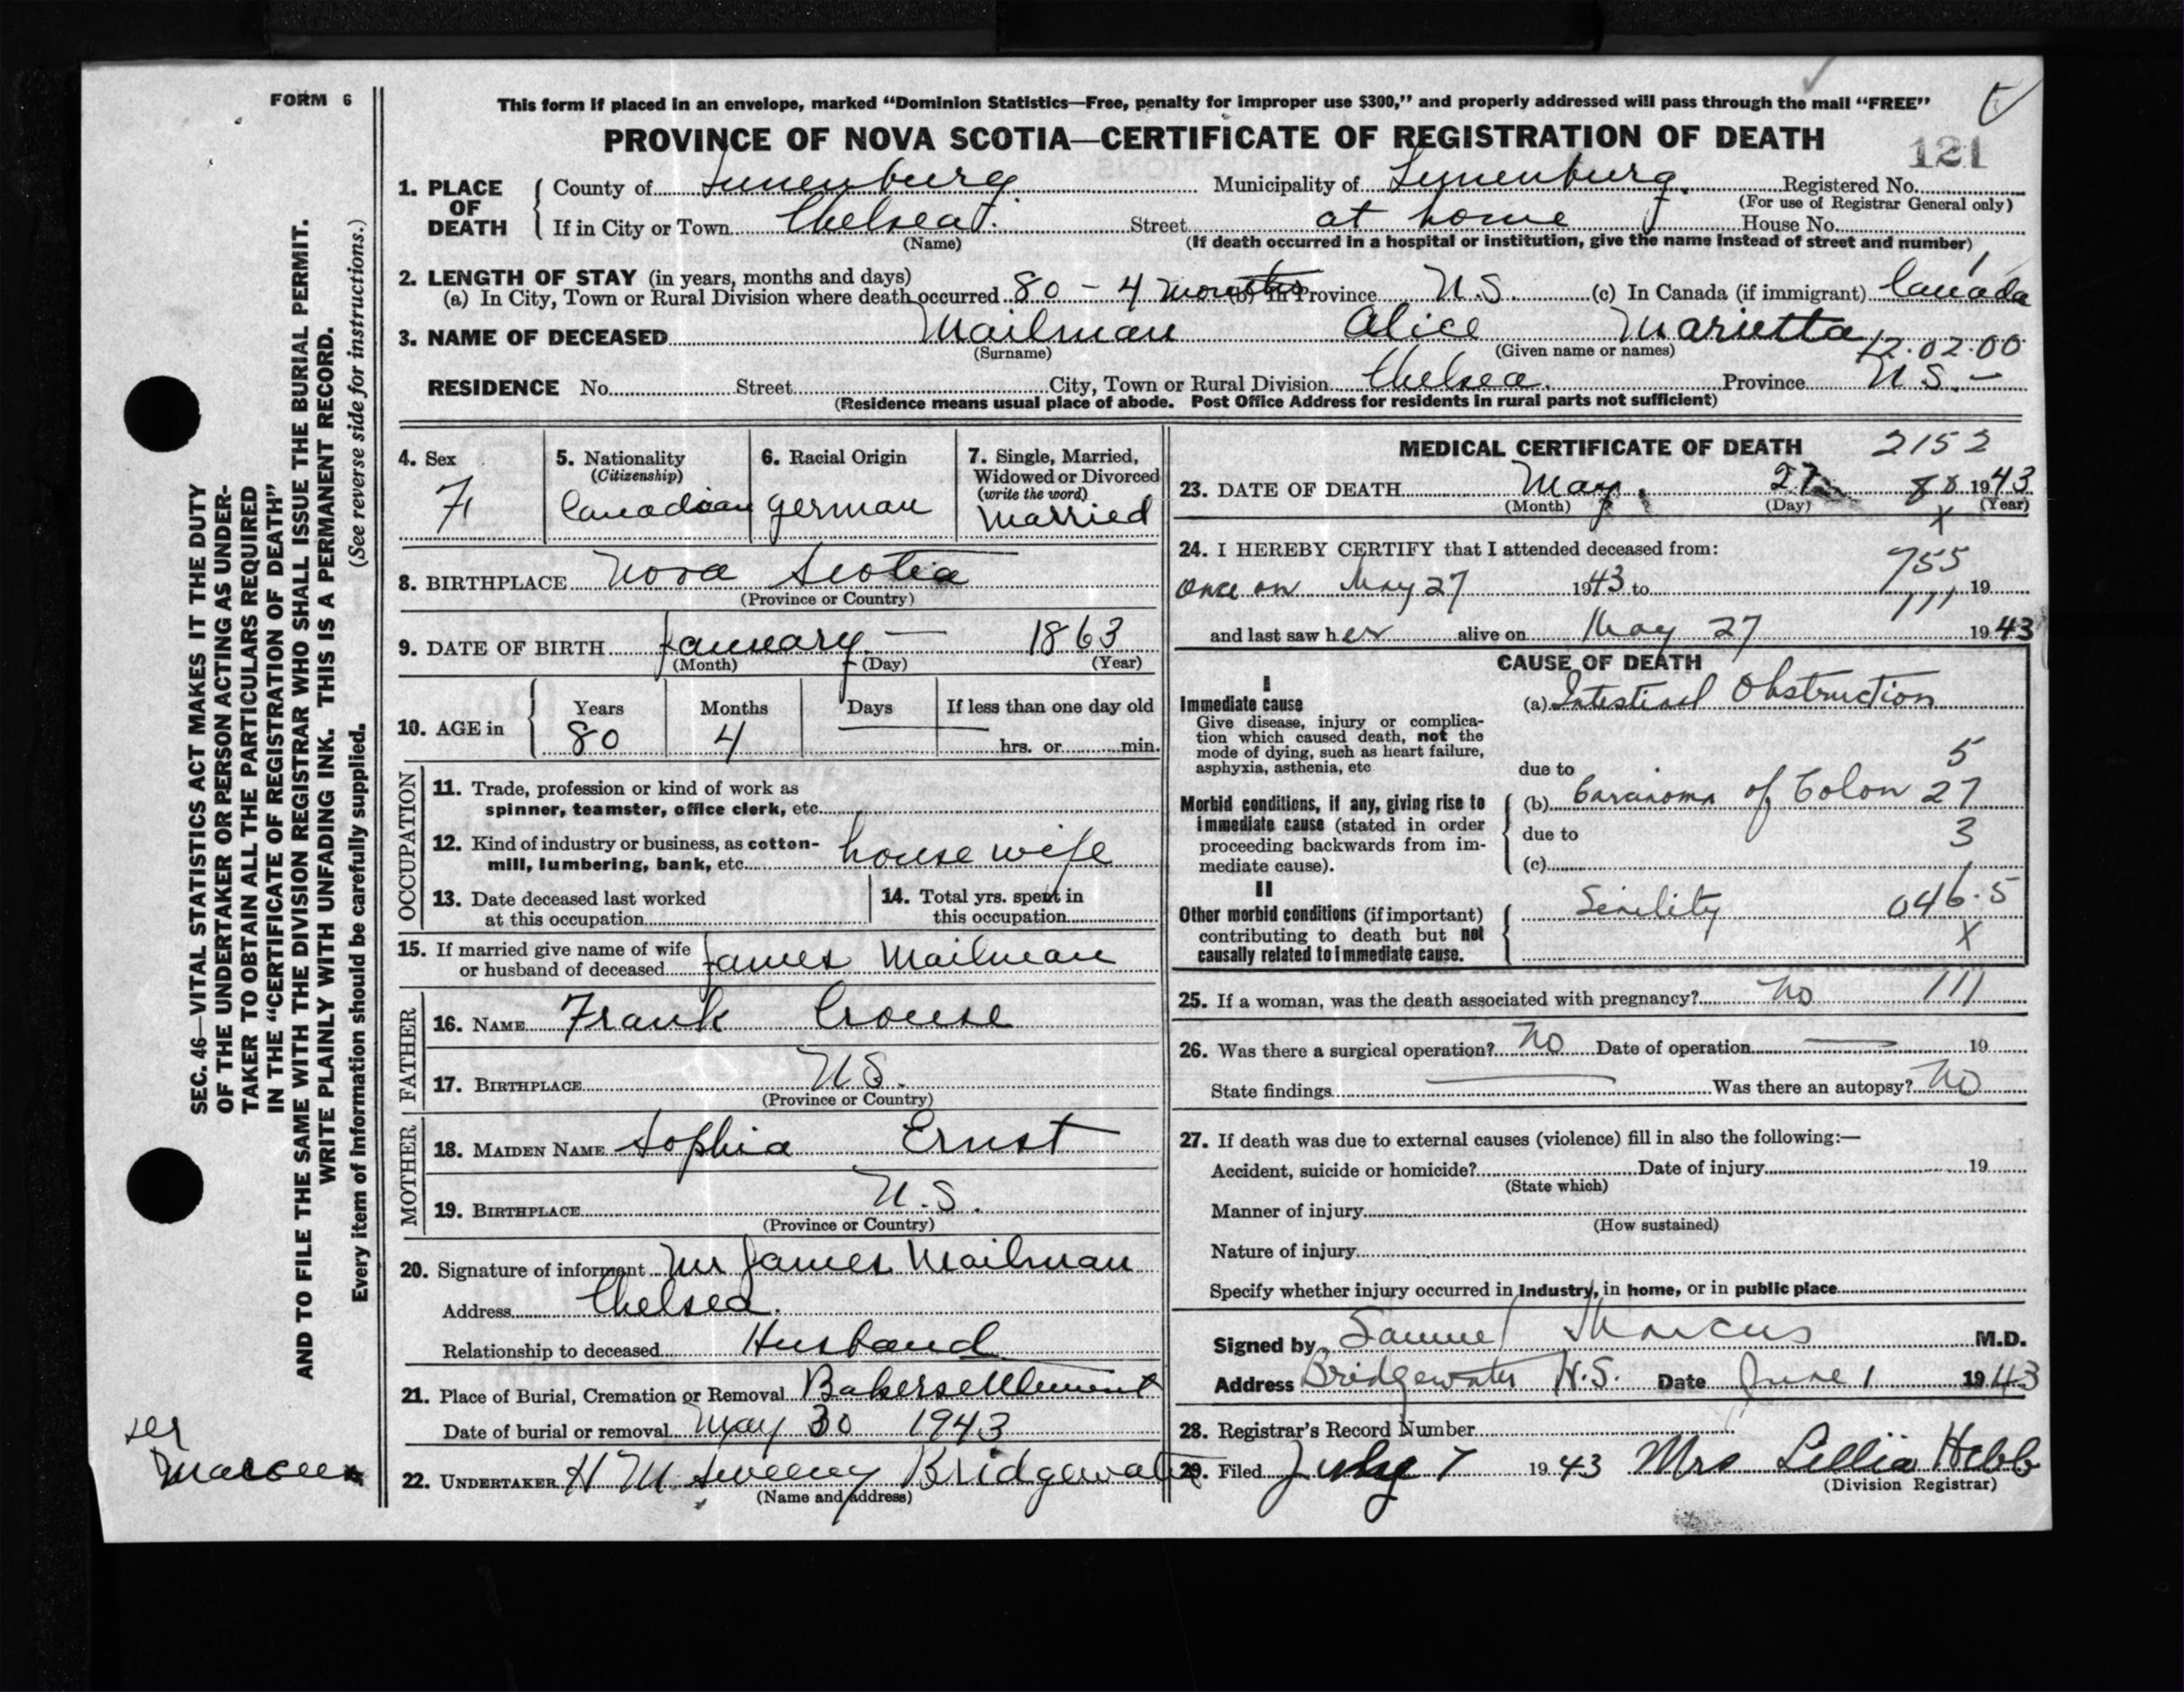 FORM 6
This form if placed in an envelope, marked “Dominion Statistics—Free, penalty for improper use $300,” and properly addressed will pass through the mail “FREE”
PROVINCE OF NOVA SCOTIA—CERTIFICATE OF REGISTRATION OF DEATH
121
1. PLACE OF DEATH
County of Lunenburg Municipality of Lunenburg Registered No.
(For use of Registrar General only)
If in City or Town Chelsea Street at home House No.
(Name) (If death occurred in a hospital or institution, give the name instead of street and number)
2. LENGTH OF STAY (in years, months and days)
(a) In City, Town or Rural Division where death occurred 80 - 4 months (b) In Province N.S. (c) In Canada (if immigrant) Canada
3. NAME OF DECEASED Mailman Alice Marietta
(Surname) (Given name or names) 12.02.00
RESIDENCE No. Street City, Town or Rural Division Chelsea. Province N.S. —
(Residence means usual place of abode. Post Office Address for residents in rural parts not sufficient)
4. Sex F
5. Nationality (Citizenship) Canadian
6. Racial Origin German
7. Single, Married, Widowed or Divorced (write the word) Married
8. BIRTHPLACE Nova Scotia
(Province or Country)
9. DATE OF BIRTH January — 1863
(Month) (Day) (Year)
10. AGE in Years Months Days If less than one day old
80 4 — hrs. or min.
OCCUPATION
11. Trade, profession or kind of work as
spinner, teamster, office clerk, etc.
12. Kind of industry or business, as cotton-
mill, lumbering, bank, etc. house wife
13. Date deceased last worked
at this occupation
14. Total yrs. spent in
this occupation
15. If married give name of wife
or husband of deceased James Mailman
FATHER
16. NAME Frank Crouse
17. BIRTHPLACE N.S.
(Province or Country)
MOTHER
18. MAIDEN NAME Sophia Ernst
19. BIRTHPLACE N.S.
(Province or Country)
20. Signature of informant Mr James Mailman
Address Chelsea.
Relationship to deceased Husband
21. Place of Burial, Cremation or Removal Bakersettlement
Date of burial or removal May 30 1943
22. UNDERTAKER H M Sweeny Bridgewater
(Name and address)
MEDICAL CERTIFICATE OF DEATH 2152
23. DATE OF DEATH May 27 1943
(Month) (Day) (Year)
X
24. I HEREBY CERTIFY that I attended deceased from:
755
Once on May 27 1943 to 19
111
and last saw her alive on May 27 1943
CAUSE OF DEATH
I
Immediate cause
Give disease, injury or complica-
tion which caused death, not the
mode of dying, such as heart failure,
asphyxia, asthenia, etc
(a) Intestinal Obstruction
5
due to
Morbid conditions, if any, giving rise to
immediate cause (stated in order
proceeding backwards from im-
mediate cause).
(b) Carcinoma of Colon 27
due to 3
(c)
II
Other morbid conditions (if important)
contributing to death but not
causally related to immediate cause.
Senility 046.5
X
25. If a woman, was the death associated with pregnancy? No 111
26. Was there a surgical operation? No Date of operation — 19
State findings — Was there an autopsy? No
27. If death was due to external causes (violence) fill in also the following:—
Accident, suicide or homicide? Date of injury 19
(State which)
Manner of injury
(How sustained)
Nature of injury
Specify whether injury occurred in industry, in home, or in public place
Signed by Samuel Marcus M.D.
Address Bridgewater N.S. Date June 1 1943
28. Registrar's Record Number
29. Filed July 7 1943 Mrs Lillia Hebb
(Division Registrar)
SEC. 46—VITAL STATISTICS ACT MAKES IT THE DUTY
OF THE UNDERTAKER OR PERSON ACTING AS UNDER-
TAKER TO OBTAIN ALL THE PARTICULARS REQUIRED
IN THE “CERTIFICATE OF REGISTRATION OF DEATH”
AND TO FILE THE SAME WITH THE DIVISION REGISTRAR WHO SHALL ISSUE THE BURIAL PERMIT.
WRITE PLAINLY WITH UNFADING INK. THIS IS A PERMANENT RECORD.
Every item of information should be carefully supplied. (See reverse side for instructions.)
Marcus